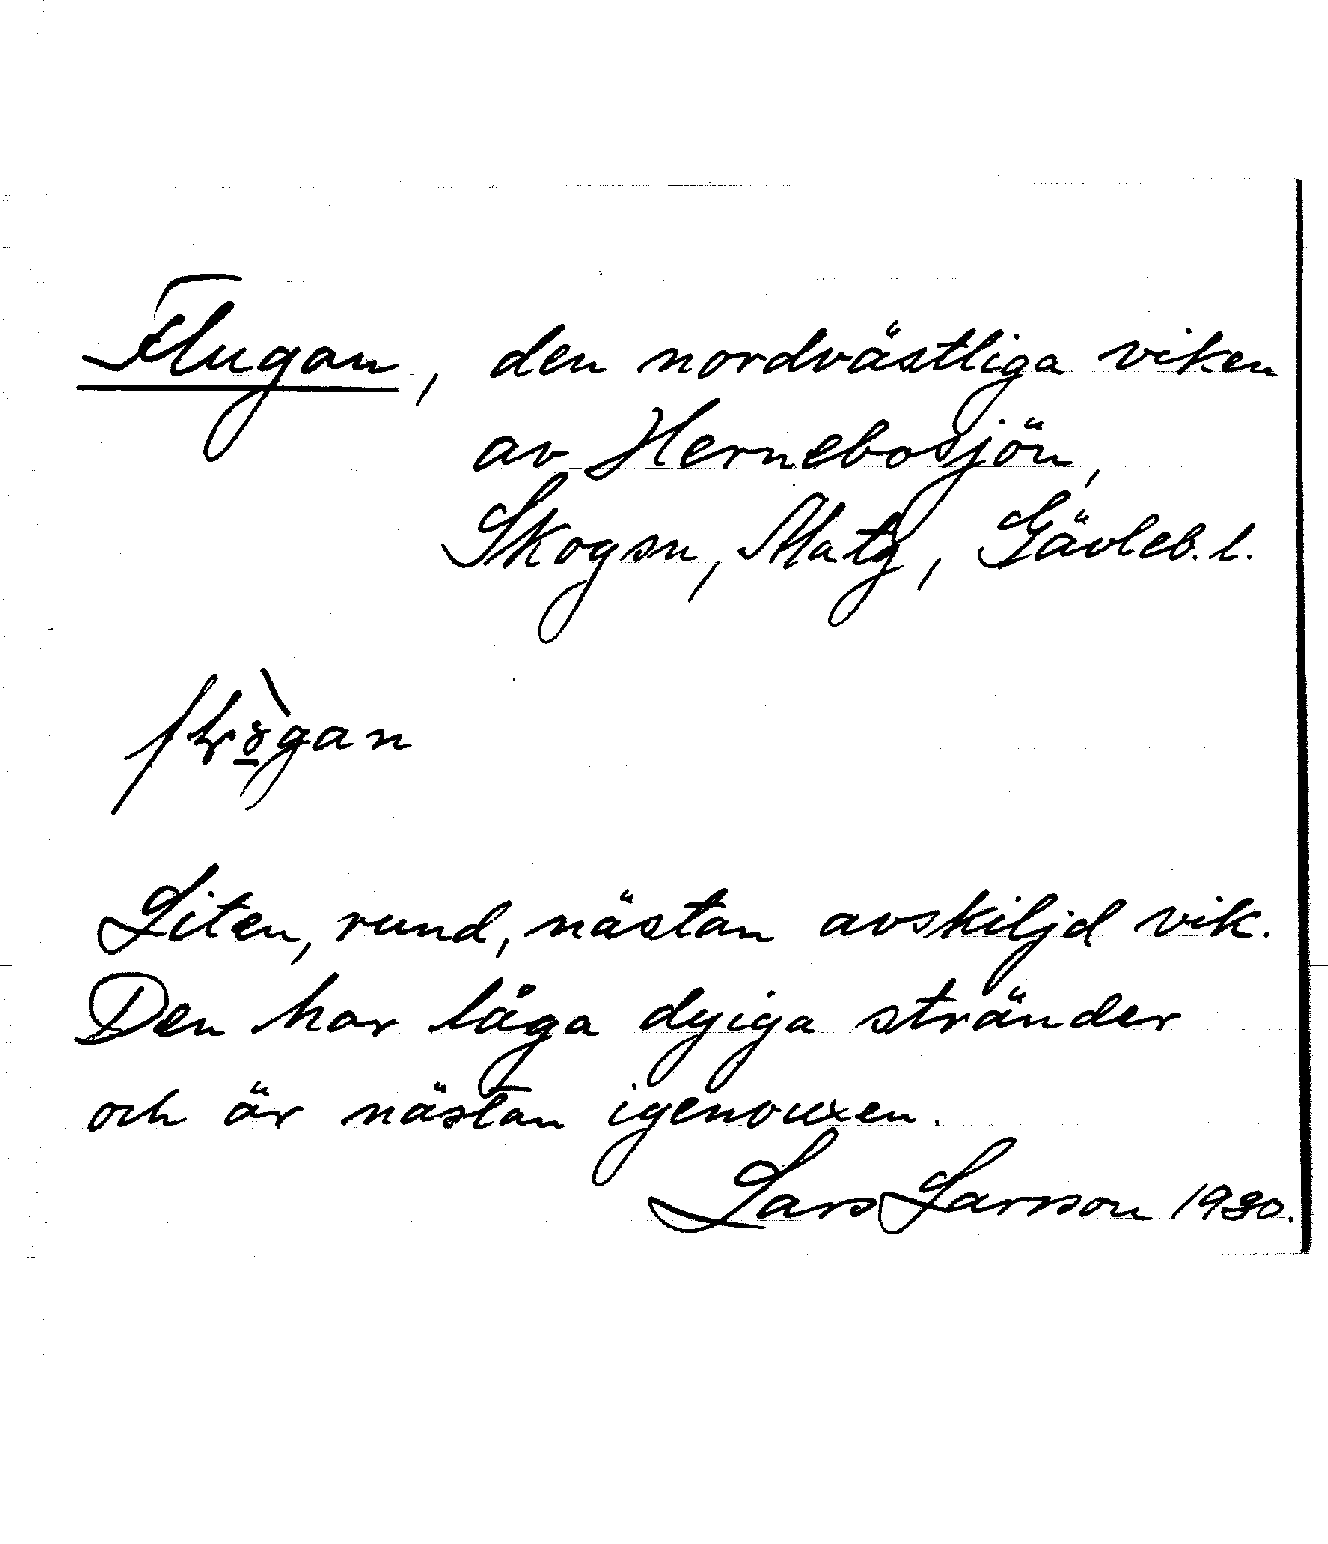 Flugan, den nordvästliga viken
av Hernebosjön,
Skogsn, Matg, Gävleb. l.
Liten, rund, nästan avskiljd vik.
Den har låga dyiga stränder
och är nästan igenvuxen.
Lars Larsson 1930.